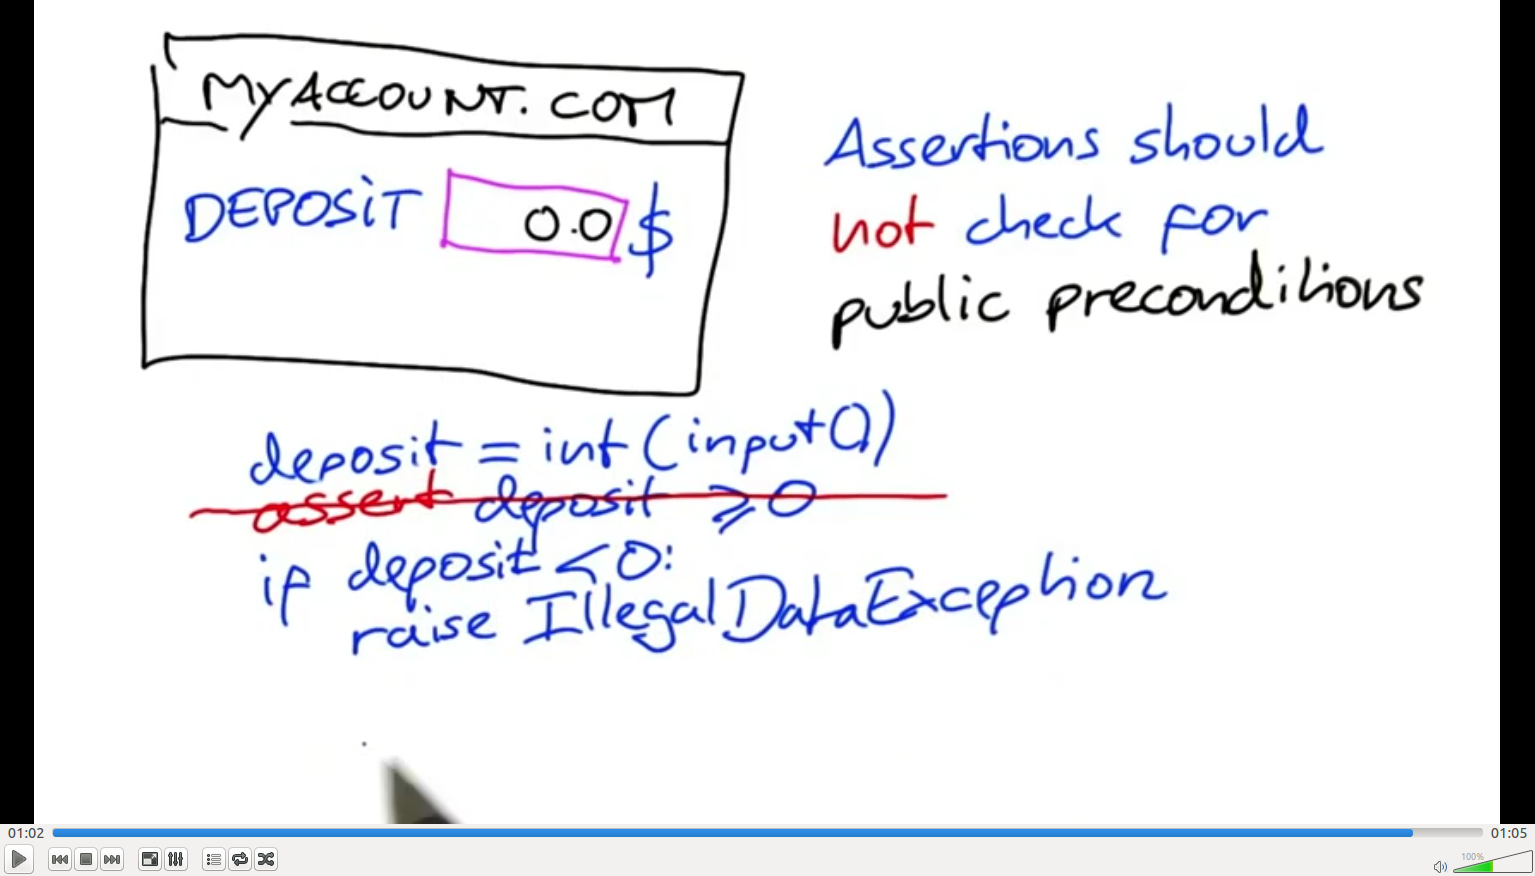 MYACCOUNT.COM
DEPOSIT 0.0 $
Assertions should
not check for
public preconditions
deposit = int(input())
assert deposit ⩾ 0
if deposit < 0:
raise IllegalDataException
01:02
01:05
100%